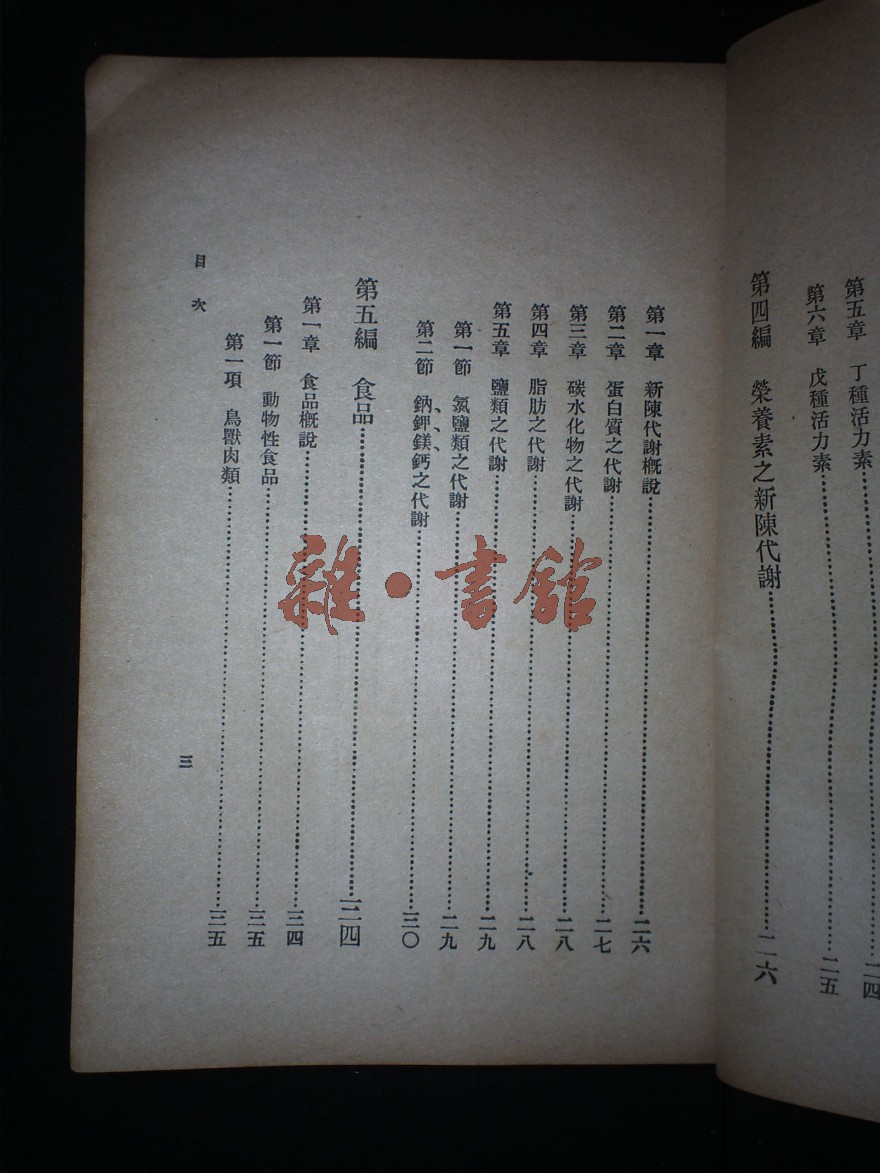 第五章　丁種活力素……二四
第六章　戊種活力素……二五
第四編　榮養素之新陳代謝……二六
第一章　新陳代謝概說……二六
第二章　蛋白質之代謝……二七
第三章　碳水化物之代謝……二八
第四章　脂肪之代謝……二八
第五章　鹽類之代謝……二九
第一節　氯鹽類之代謝……二九
第二節　鈉、鉀、鎂、鈣之代謝……三〇
第五編　食品……三四
第一章　食品概說……三四
第一節　動物性食品……三五
第一項　鳥獸肉類……三五
目次
三
雜·書館